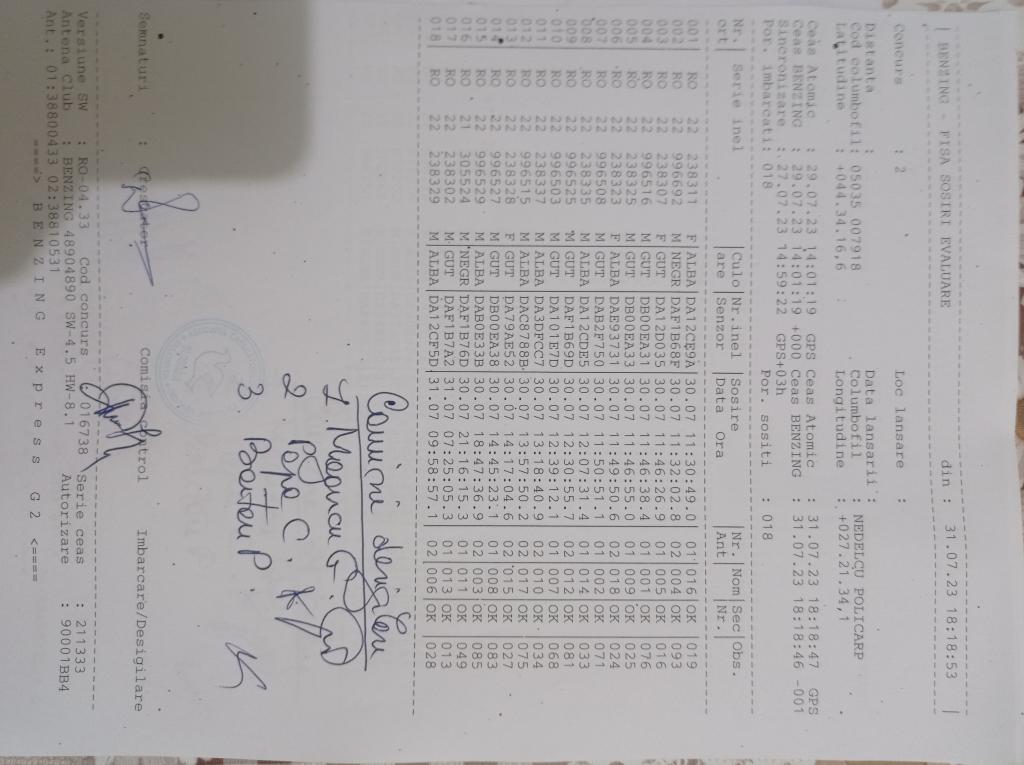 | BENZING - FISA SOSIRI EVALUARE din : 31.07.23 18:18:53 |
Concurs : 2 Loc lansare :
Distanta : Data lansarii :
Cod columbofil: 05035 007918 Columbofil : NEDELCU POLICARP
Latitudine : +044.34.16,6 Longitudine : +027.21.34,1
Ceas Atomic : 29.07.23 14:01:19 GPS Ceas Atomic : 31.07.23 18:18:47 GPS
Ceas BENZING : 29.07.23 14:01:19 +000 Ceas BENZING : 31.07.23 18:18:46 -001
Sincronizare : 27.07.23 14:59:22 GPS+03h
Por. imbarcati: 018 Por. sositi : 018
Nr.| Serie inel |Culo|Nr.inel |Sosire |Nr.|Nom|Sec|Obs.
ort| |are |Senzor |Data Ora |Ant| |Nr.|
001| RO 22 238311 F|ALBA|DA12CE9A|30.07 11:30:49.0|01|016|OK |019
002| RO 22 996692 M|NEGR|DAF1B68F|30.07 11:32:02.8|02|004|OK |093
003| RO 22 238307 F|GUT |DA12D035|30.07 11:46:26.9|01|005|OK |016
004| RO 22 996516 M|GUT |DB00EA31|30.07 11:46:38.4|01|001|OK |076
005| RO 22 238325 M|GUT |DB00EA33|30.07 11:46:55.0|01|009|OK |025
006| RO 22 238323 F|ALBA|DAE93731|30.07 11:49:50.6|02|018|OK |024
007| RO 22 996508 M|GUT |DAB2F750|30.07 11:50:51.1|01|002|OK |071
008| RO 22 238335 M|ALBA|DA12CDE5|30.07 12:07:31.4|01|014|OK |033
009| RO 22 996525 M|GUT |DAF1B69D|30.07 12:30:55.7|02|012|OK |081
010| RO 22 996503 M|GUT |DA101E7D|30.07 12:39:12.1|01|007|OK |088
011| RO 22 238337 M|ALBA|DA3DFCC7|30.07 13:18:40.9|02|010|OK |034
012| RO 22 996515 M|ALBA|DAC8788B|30.07 13:57:50.2|02|017|OK |075
013| RO 22 238328 F|GUT |DA79AE52|30.07 14:17:04.6|02|015|OK |027
014| RO 22 996527 M|GUT |DB00EA38|30.07 14:45:23.1|01|008|OK |083
015| RO 22 996529 M|ALBA|DAB0E33B|30.07 18:47:36.9|02|003|OK |085
016| RO 21 305524 M|NEGR|DAF1B76D|30.07 21:16:15.3|01|011|OK |049
017| RO 22 238302 M|GUT |DAF1B7A2|31.07 07:25:05.3|01|013|OK |013
018| RO 22 238329 M|ALBA|DA12CF5D|31.07 09:58:57.1|02|006|OK |028
1.
2. Popa C.
3.
Semnaturi : Crescator Comisia control Imbarcare/Desigilare
Versiune SW : RO-04.33 Cod concurs : 016738 Serie ceas : 211333
Antena Club : BENZING 48904890 SW-4.5 HW-8.1 Autorizare : 90001BB4
Ant.: 01:38800433 02:38810531
====> B E N Z I N G E x p r e s s G 2 <====